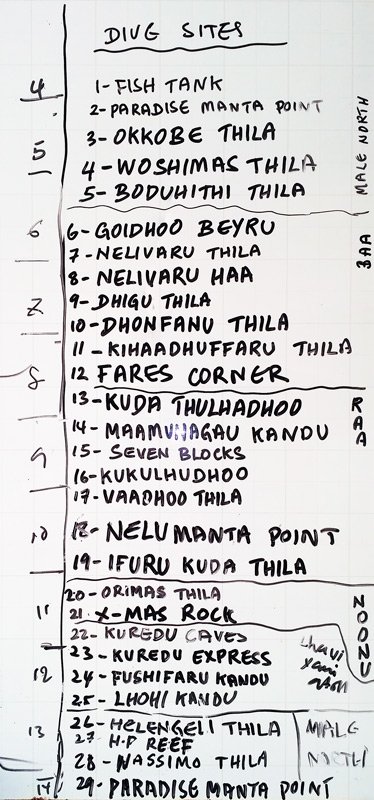 DIVE SITES
4
1- FISH TANK
2- PARADISE MANTA POINT
3- OKKOBE THILA
5
4- WOSHIMAS THILA
5- BODUHITHI THILA
MALE NORTH
6
6- GOIDHOO BEYRU
7- NELIVARU THILA
8- NELIVARU HAA
BAA
7
9- DHIGU THILA
10- DHONFANU THILA
11- KIHAADHUFFARU THILA
8
12 FARES CORNER
13- KUDA THULHADHOO
14- MAAMUNAGAU KANDU
RAA
9
15- SEVEN BLOCKS
16- KUKULHUDHOO
17- VAADHOO THILA
10
18- NELU MANTA POINT
19- IFURU KUDA THILA
20- ORIMAS THILA
11
21. X-MAS ROCK
NOONU
22- KUREDU CAVES
23- KUREDU EXPRESS
12
24- FUSHIFARU KANDU
25- LHOHI KANDU
Lhavi
yani
13
26- HELENGELI THILA
27- H.P REEF
28- NASSIMO THILA
MALE
14
29- PARADISE MANTA POINT